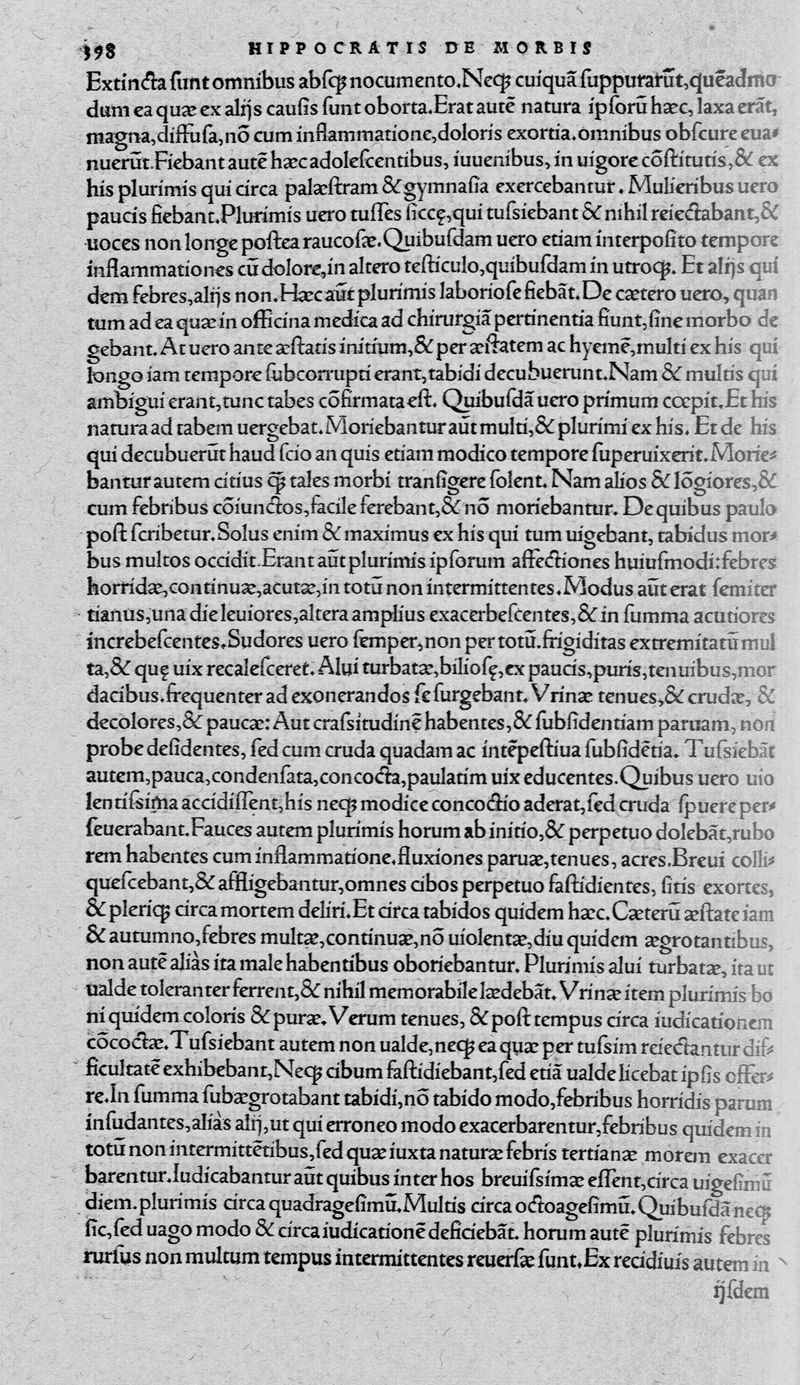 398 HIPPOCRATIS DE MORBIS
Extincta ſunt omnibus abſꝗ nocumento. Neqꝫ cuiquã ſuppurarũt, quẽadmo
dum ea quæ ex alijs cauſis ſunt oborta. Erat autẽ natura ipſorũ hæc, laxa erãt,
magna, diffuſa, nõ cum inflammatione, doloris exortia. omnibus obſcure eua⸗
nuerũt. Fiebant autẽ hæc adoleſcentibus, iuuenibus, in uigore cõſtitutis, & ex
his plurimis qui circa palæſtram & gymnaſia exercebantur. Mulieribus uero
paucis fiebant. Plurimis uero tuſſes ſiccę, qui tuſsiebant & nihil reiectabant, &
uoces non longe poſtea raucoſæ. Quibuſdam uero etiam interpoſito tempore
inflammationes cũ dolore, in altero teſticulo, quibuſdam in utroqꝫ. Et alijs qui
dem febres, alijs non. Hæc aũt plurimis laborioſe fiebãt. De cætero uero, quan
tum ad ea quæ in officina medica ad chirurgiã pertinentia fiunt, ſine morbo de
gebant. At uero ante æſtatis initium, & per æſtatem ac hyemẽ, multi ex his qui
longo iam tempore ſubcorrupti erant, tabidi decubuerunt. Nam & multis qui
ambigui erant, tunc tabes cõfirmata eſt. Quibuſdã uero primum cœpit. Et his
natura ad tabem uergebat. Moriebantur aũt multi, & plurimi ex his. Et de his
qui decubuerũt haud ſcio an quis etiam modico tempore ſuperuixerit. Morie⸗
bantur autem citius ꝗ̃ tales morbi tranſigere ſolent. Nam alios & lõgiores, &
cum febribus cõiunctos, facile ferebant, & nõ moriebantur. De quibus paulo
poſt ſcribetur. Solus enim & maximus ex his qui tum uigebant, tabidus mor⸗
bus multos occidit. Erant aũt plurimis ipſorum affectiones huiuſmodi: febres
horridæ, continuæ, acutæ, in totũ non intermittentes. Modus aũt erat ſemiter
tianus, una die leuiores, altera amplius exacerbeſcentes, & in ſumma acutiores
increbeſcentes. Sudores uero ſemper, non per totũ. frigiditas extremitatũ mul
ta, & quę uix recaleſceret. Alui turbatæ, bilioſę, ex paucis, puris, tenuibus, mor
dacibus. frequenter ad exonerandos ſe ſurgebant. Vrinæ tenues, & crudæ, &
decolores, & paucæ: Aut craſsitudinẽ habentes, & ſubſidentiam paruam, non
probe deſidentes, ſed cum cruda quadam ac intẽpeſtiua ſubſidẽtia. Tuſsiebãt
autem, pauca, condenſata, concocta, paulatim uix educentes. Quibus uero uio
lentiſsima accidiſſent, his neqꝫ modice concoctio aderat, ſed cruda ſpuere per⸗
ſeuerabant. Fauces autem plurimis horum ab initio, & perpetuo dolebãt, rubo
rem habentes cum inflammatione. fluxiones paruæ, tenues, acres. Breui colli⸗
queſcebant, & affligebantur, omnes cibos perpetuo faſtidientes, ſitis exortes,
& pleriqꝫ circa mortem deliri. Et circa tabidos quidem hæc. Cæterũ æſtate iam
& autumno, febres multæ, continuæ, nõ uiolentæ, diu quidem ægrotantibus,
non autẽ aliàs ita male habentibus oboriebantur. Plurimis alui turbatæ, ita ut
ualde toleranter ferrent, & nihil memorabile lædebãt. Vrinæ item plurimis bo
ni quidem coloris & puræ. Verum tenues, & poſt tempus circa iudicationem
cõcoctæ. Tuſsiebant autem non ualde, neqꝫ ea quæ per tuſsim reiectantur dif⸗
ficultatẽ exhibebant, Neqꝫ cibum faſtidiebant, ſed etiã ualde licebat ipſis offer⸗
re. In ſumma ſubægrotabant tabidi, nõ tabido modo, febribus horridis parum
inſudantes, aliàs alij, ut qui erroneo modo exacerbarentur, febribus quidem in
totũ non intermittẽtibus, ſed quæ iuxta naturæ febris tertianæ morem exacer
barentur. Iudicabantur aũt quibus inter hos breuiſsimæ eſſent, circa uigeſimũ
diem. plurimis circa quadrageſimũ. Multis circa octoageſimũ. Quibuſdã neqꝫ
ſic, ſed uago modo & circa iudicationẽ deficiebãt. horum autẽ plurimis febres
rurſus non multum tempus intermittentes reuerſæ ſunt. Ex recidiuis autem in
ijſdem